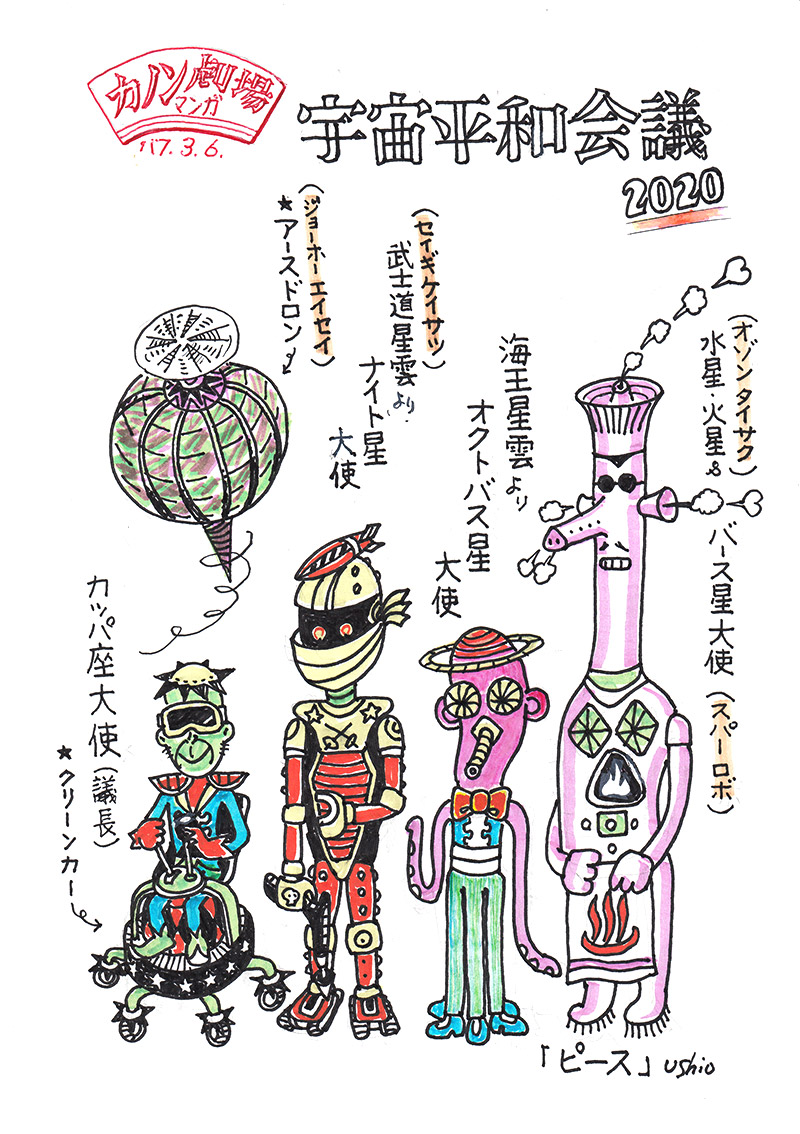 カノン劇場
マンガ
'17.3.6.
宇宙平和会議
2020
(オゾンタイサク)
水星・火星&
バース星大使(スパーロボ)
海王星雲より
オクトバス星
大使
(セイギケイサツ)
武士道星雲より.
ナイト星
大使
(ジョーホーエイセイ)
★アースドロン
カッパ座大使(議長)
★クリーンカー
「ピース」ushio